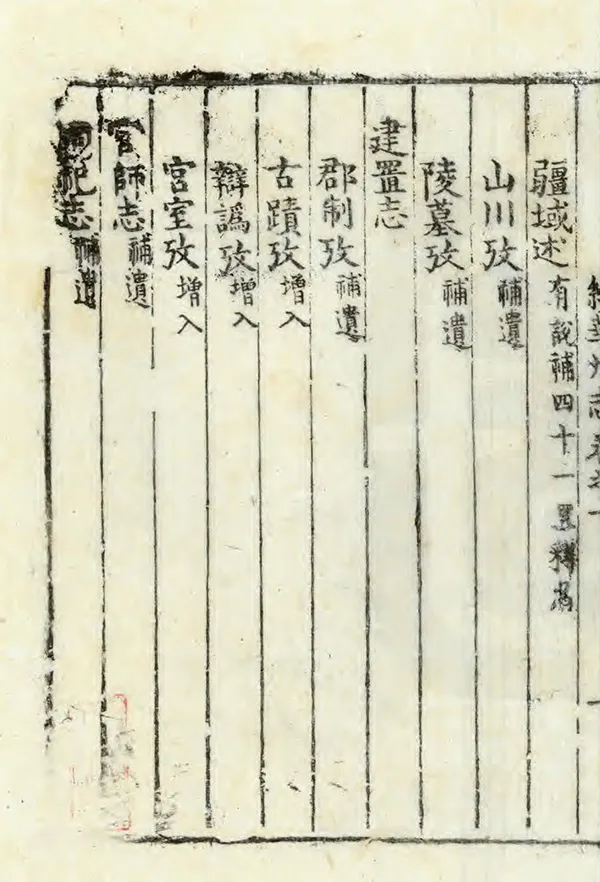 續華州志卷之一
疆域述 有說補四十一
山川攷 補遺
陵墓攷 補遺
建置志
郡制攷 補遺
古蹟攷 增入
辯譌攷 增入
宮室攷 增入
官師志 補遺
祀志 補遺